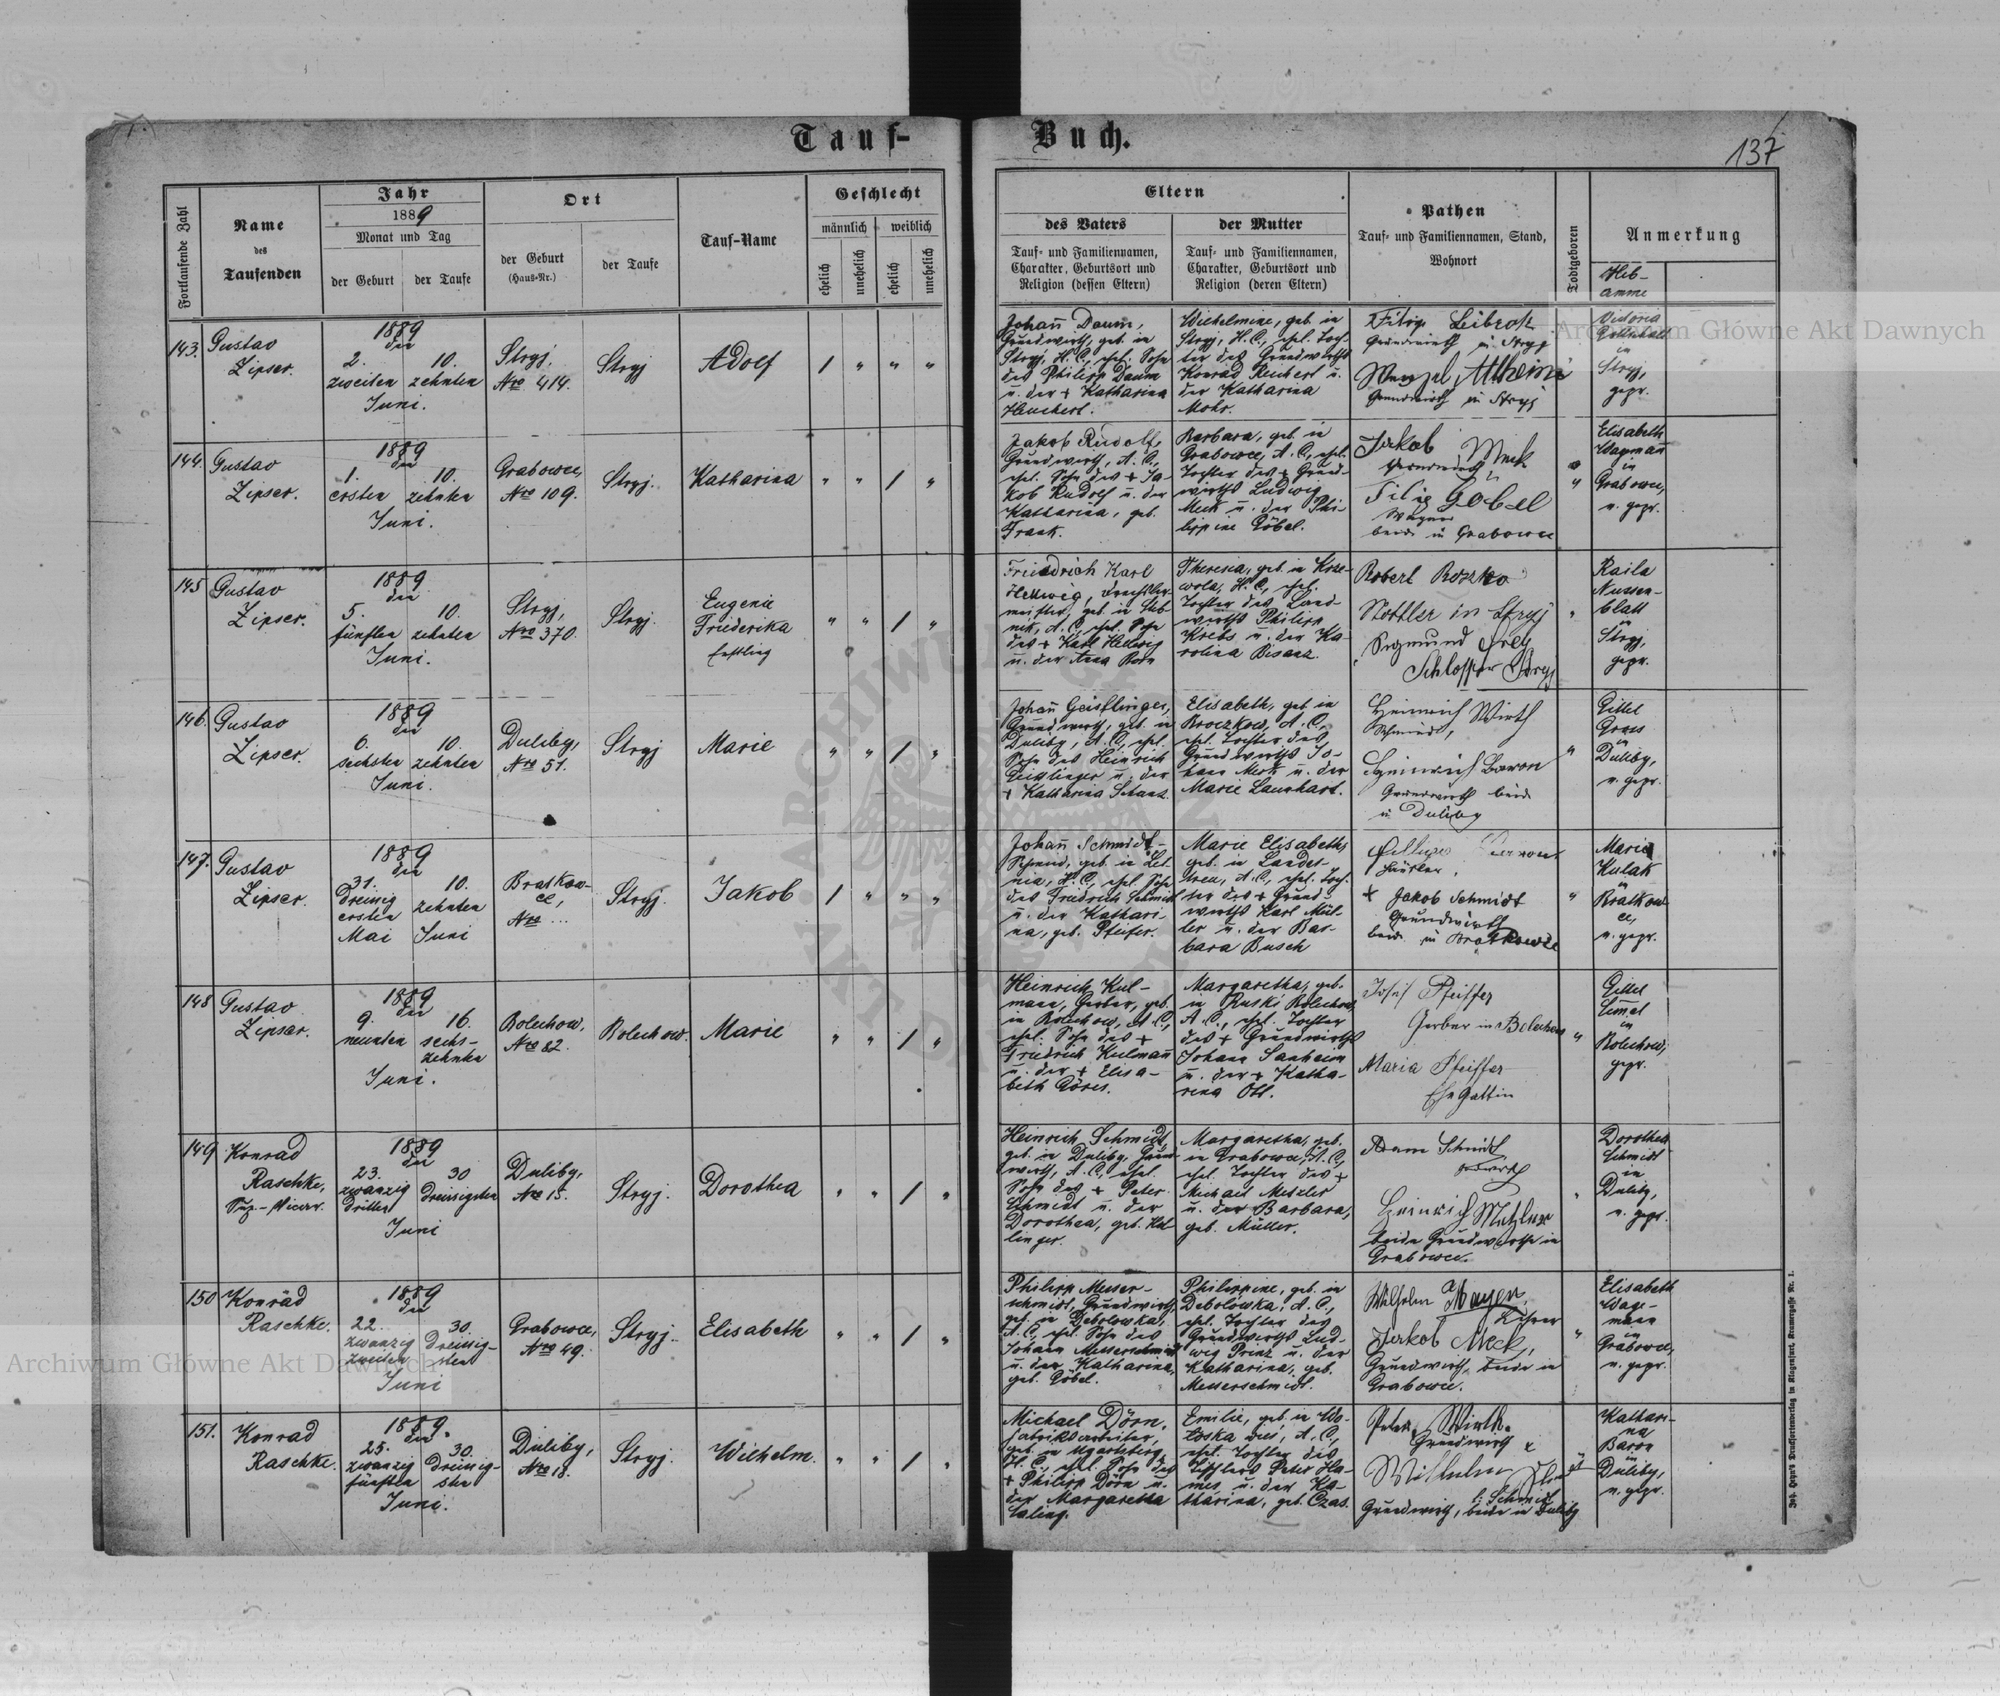 Tauf-
Buch.
137
Fortlaufende Zahl
Name
des
Taufenden
Jahr
1889
Monat und Tag
der Geburt
der Taufe
Ort
der Geburt
(Haus-Nr.)
der Taufe
Tauf-Name
Geschlecht
männlich
weiblich
ehelich
unehelich
ehelich
unehelich
Eltern
des Vaters
Tauf- und Familiennamen,
Charakter, Geburtsort und
Religion (dessen Eltern)
der Mutter
Tauf- und Familiennamen,
Charakter, Geburtsort und
Religion (deren Eltern)
Pathen
Tauf- und Familiennamen, Stand,
Wohnort
Todtgeboren
Anmerkung
Heb-
amme
143.
Gustav
Zipser.
1889
den
2. 10.
zweiten zehnten
Juni.
Stryj,
Nro 414.
Stryj
Adolf
Johañ Daum,
Grundwirth, geb. in
Stryj, H. C., ehel. Sohn
des Philipp Daum
u. der + Katharina
Heuchert.
Wilhelmine, geb. in
Stryj, H. C., ehel. Toch-
ter des Grundwirths
Konrad Reichert u.
der Katharina
Mohr.
Filip Leibrok
Grundwirth in Stryj
Wenzel Altheim
Grundwirth in Stryj
Victoria
in
Stryj,
gepr.
144.
Gustav
Zipser.
1889
den
1. 10.
ersten zehnten
Juni.
Grabowce,
Nro 109.
Stryj.
Katharina
Jakob Rudolf,
Grundwirth, A. C.,
ehel. Sohn des + Ja-
kob Rudolf u. der
Katharina, geb.
Frank.
Barbara, geb. in
Grabowce, A. C., ehel.
Tochter des + Grund-
wirths Ludwig
Meck u. der Phi-
lippine Göbel.
Jakob Meck
Grundwirth
Filip Gobel
Wagner
beide in Grabowce
Elisabeth
Wagmañ
in
Grabowce,
n. gepr.
145
Gustav
Zipser.
1889
den
5. 10.
fünften zehnten
Juni.
Stryj,
Nro 370.
Stryj.
Eugenie
Friederika
Erstling
Friedrich Karl
Hellwig, Drechsler-
meister, geb. in
A. C., ehel. Sohn
des + Karl Hellwig
u. der Anna
Theresia, geb. in
H. C., ehel.
Tochter des Land-
wirths Philipp
Krebs u. der Ka-
rolina Bisanz.
Robert Roszko
Sattler in Stryj
Sigmund Frey
Schlosser Stryj
Raila
Nussen-
blatt
in
Stryj,
gepr.
146.
Gustav
Zipser.
1889
den
6. 10.
sechsten zehnten
Juni.
Duliby,
Nro 51.
Stryj
Marie
Johañ Geisslinger,
Grundwirth, geb. in
Duliby, A. C., ehel.
Sohn des Heinrich
Geisslinger u. der
+ Katharina Schanz.
Elisabeth, geb. in
Broczkow, A. C.,
ehel. Tochter des
Grundwirths Jo-
hann Merk u. der
Marie Launhart.
Heinrich Wirth
Schmied,
Heinrich Baron
Grundwirth beide
in Duliby
Gittel
Gross
in
Duliby,
n. gepr.
147.
Gustav
Zipser.
1889
den
31. 10.
Dreissig zehnten
ersten
Mai Juni
Bratkow-
ce,
Nro ...
Stryj.
Jakob
Johañ Schmidt,
Schmied, geb. in Let-
nia, H. C., ehel. Sohn
des Friedrich Schmidt
u. der Kathari-
na, geb. Pfeifer.
Marie Elisabeth,
geb. in Landes-
treu, A. C., ehel. Toch-
ter des + Grund-
wirths Karl Mül-
ler u. der Bar-
bara Busch
+ Jakob Schmidt
Grundwirth
beide in Bratkowce
Marie
Kulak
in
Bratkow-
ce,
n. gepr.
148
Gustav
Zipser.
1889
den
9. 16.
neunten sechs-
zehnten
Juni.
Bolechow,
Nro 82.
Bolechow.
Marie
Heinrich Kul-
mann, Gerber, geb.
in Bolechow, A. C.,
ehel. Sohn des +
Friedrich Kulmañ
u. der + Elisa-
beth Göres.
Margaretha, geb.
in Ruski Bolechow,
A. C., ehel. Tochter
des + Grundwirths
Johann Sanheim
u. der + Katha-
rina Ott.
Josef Pfeiffer
Gerber in Bolechow
Maria Pfeiffer
Ehe Gattin
Gittel
in
Bolechow,
gepr.
149
Konrad
Raschke,
Sup.-Vicar.
1889
den
23. 30
zwanzig Dreissigsten
dritten
Juni
Duliby,
Nro 15.
Stryj.
Dorothea
Heinrich Schmidt,
geb. in Duliby, Grund-
wirth, A. C., ehel.
Sohn des + Peter
Schmidt u. der
Dorothea, geb. Kal-
linger.
Margaretha, geb.
in Grabowce, A. C.,
ehel. Tochter des +
Michael Metzler
u. der Barbara,
geb. Müller.
Adam Schmidt
Heinrich Metzler
beide Grundwirthe in
Grabowce.
Dorothea
Schmidt
in
Duliby,
n. gepr.
150
Konrad
Raschke.
1889
den
22. 30.
zwanzig Dreissig-
zweiten sten
Juni
Grabowce,
Nro 49.
Stryj.
Elisabeth
Philipp Messer-
schmidt, Grundwirth,
geb. in Debolowka,
A. C., ehel. Sohn des
Johann Messerschmidt
u. der Katharina,
geb. Göbel.
Philippine, geb. in
Debolowka, A. C.,
ehel. Tochter des
Grundwirths Lud-
wig Prinz u. der
Katharina, geb.
Messerschmidt.
Wilhelm Mayer,
Lehrer
Jakob Meck,
Grundwirth, beide in
Grabowce.
Elisabeth
Wage-
mann
in
Grabowce,
n. gepr.
151.
Konrad
Raschke.
1889.
den
25. 30.
zwanzig Dreissig-
fünften sten
Juni.
Duliby,
Nro 18.
Stryj.
Wilhelm.
Michael Dörn,
Fabriksarbeiter,
geb. in Ugartsberg,
H. C., ehel. Sohn des
+ Philipp Dörn u.
der Margaretha
Saling.
Emilie, geb. in Wo-
loska wies, A. C.,
ehel. Tochter des
Tischlers Peter Ha-
mes u. der Ka-
tharina, geb. Czas.
Peter Wirth.
Grundwirth
Wilhelm
Schmidt
Grundwirth, beide in Duliby
Kathari-
na
Baron
in
Duliby,
n. gepr.
Joh. Heyn's Drucksortenverlag in Klagenfurt, Kramergasse Nr. 1.
Archiwum Główne Akt Dawnych
Archiwum Główne Akt Dawnych